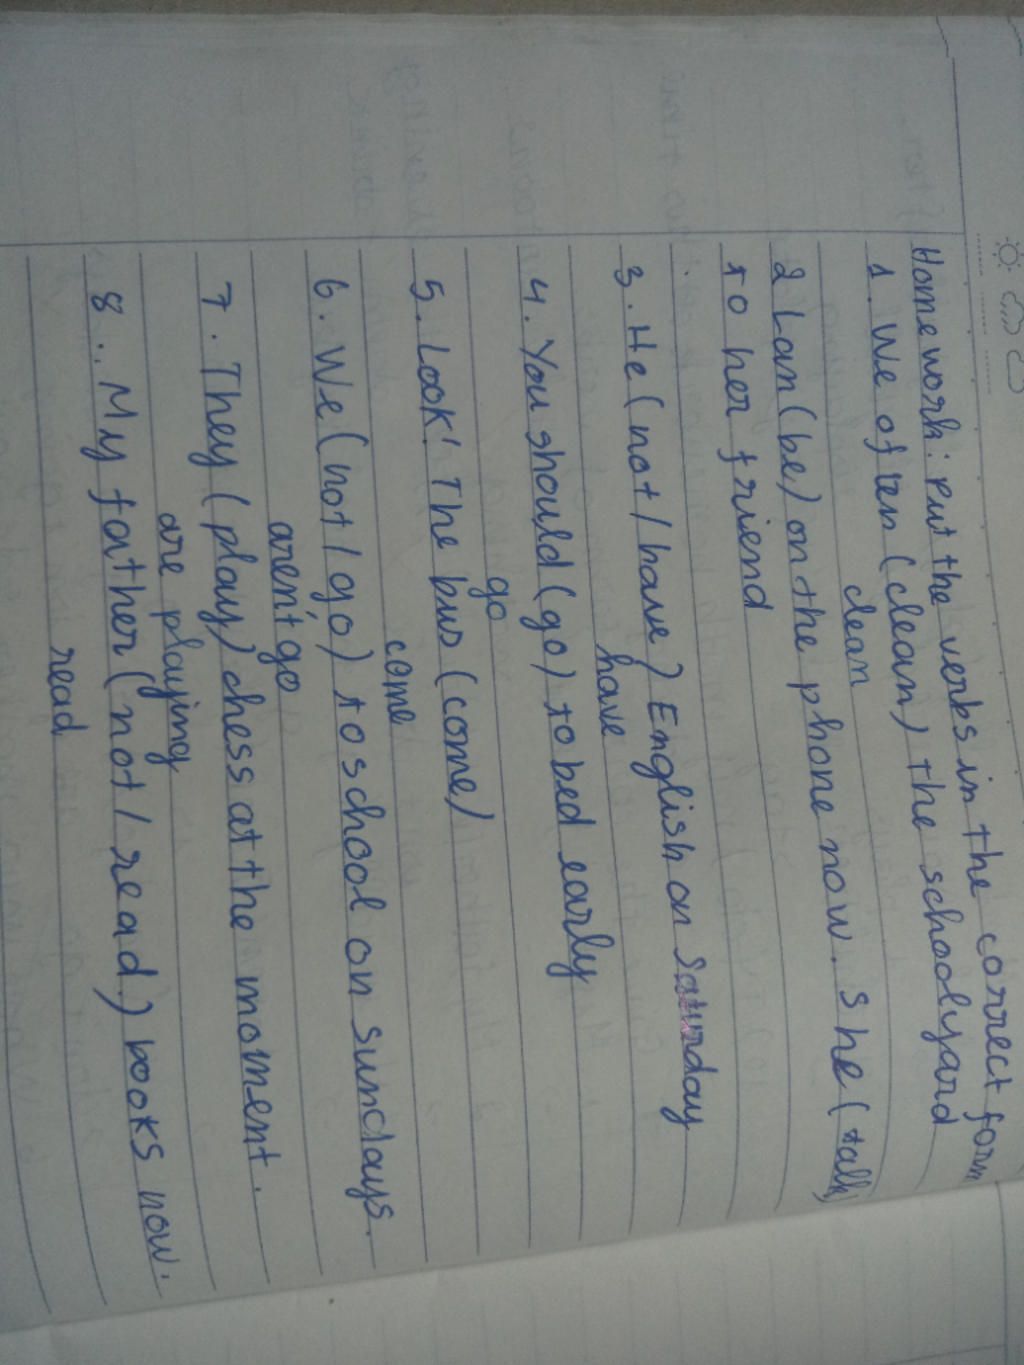 Homework: Put the verbs in the correct form
1. We often (clean) the schoolyard
clean
2 Lan (be) on the phone now. She (talk)
to her friend
3. He (not / have) English on Saturday
have
4. You should (go) to bed early
go
5. Look! The bus (come)
come
6. We (not / go) to school on Sundays.
aren't go
7. They (play) chess at the moment.
are playing
8... My father (not / read) books now.
read